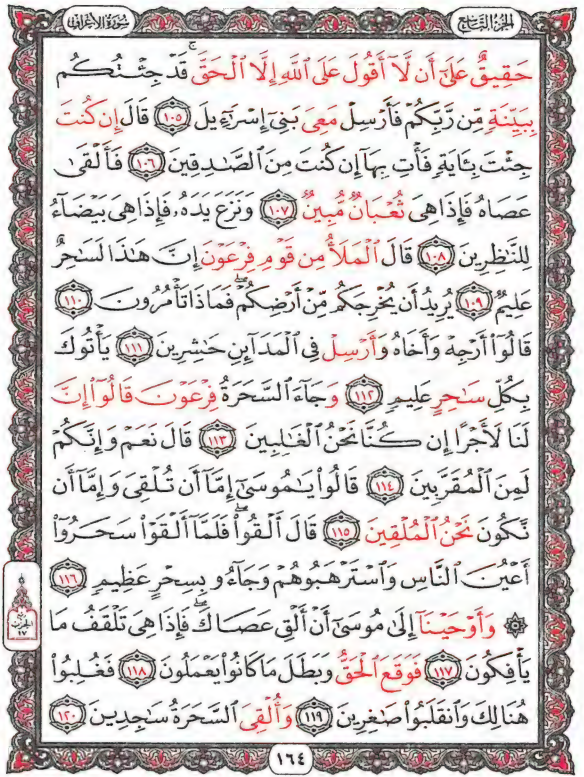 الجزء التاسع
سورة الأعراف
حَقِيقٌ عَلَىٰٓ أَن لَّآ أَقُولَ عَلَى ٱللَّهِ إِلَّا ٱلْحَقَّ ۚ قَدْ جِئْتُكُم
بِبَيِّنَةٍ مِّن رَّبِّكُمْ فَأَرْسِلْ مَعِىَ بَنِىٓ إِسْرَٰٓءِيلَ ١٠٥ قَالَ إِن كُنتَ
جِئْتَ بِـَٔايَةٍ فَأْتِ بِهَآ إِن كُنتَ مِنَ ٱلصَّـٰدِقِينَ ١٠٦ فَأَلْقَىٰ
عَصَاهُ فَإِذَا هِىَ ثُعْبَانٌ مُّبِينٌ ١٠٧ وَنَزَعَ يَدَهُۥ فَإِذَا هِىَ بَيْضَآءُ
لِلنَّـٰظِرِينَ ١٠٨ قَالَ ٱلْمَلَأُ مِن قَوْمِ فِرْعَوْنَ إِنَّ هَـٰذَا لَسَـٰحِرٌ
عَلِيمٌ ١٠٩ يُرِيدُ أَن يُخْرِجَكُم مِّنْ أَرْضِكُمْ ۖ فَمَاذَا تَأْمُرُونَ ١١٠
قَالُوٓا۟ أَرْجِهْ وَأَخَاهُ وَأَرْسِلْ فِى ٱلْمَدَآئِنِ حَـٰشِرِينَ ١١١ يَأْتُوكَ
بِكُلِّ سَـٰحِرٍ عَلِيمٍ ١١٢ وَجَآءَ ٱلسَّحَرَةُ فِرْعَوْنَ قَالُوٓا۟ إِنَّ
لَنَا لَأَجْرًا إِن كُنَّا نَحْنُ ٱلْغَـٰلِبِينَ ١١٣ قَالَ نَعَمْ وَإِنَّكُمْ
لَمِنَ ٱلْمُقَرَّبِينَ ١١٤ قَالُوا۟ يَـٰمُوسَىٰٓ إِمَّآ أَن تُلْقِىَ وَإِمَّآ أَن
نَّكُونَ نَحْنُ ٱلْمُلْقِينَ ١١٥ قَالَ أَلْقُوا۟ ۖ فَلَمَّآ أَلْقَوْا۟ سَحَرُوٓا۟
أَعْيُنَ ٱلنَّاسِ وَٱسْتَرْهَبُوهُمْ وَجَآءُو بِسِحْرٍ عَظِيمٍ ١١٦
۞ وَأَوْحَيْنَآ إِلَىٰ مُوسَىٰٓ أَنْ أَلْقِ عَصَاكَ ۖ فَإِذَا هِىَ تَلْقَفُ مَا
يَأْفِكُونَ ١١٧ فَوَقَعَ ٱلْحَقُّ وَبَطَلَ مَا كَانُوا۟ يَعْمَلُونَ ١١٨ فَغُلِبُوا۟
هُنَالِكَ وَٱنقَلَبُوا۟ صَـٰغِرِينَ ١١٩ وَأُلْقِىَ ٱلسَّحَرَةُ سَـٰجِدِينَ ١٢٠
الحزب
١٧
١٦٤